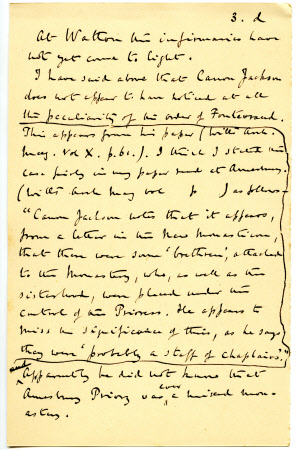 3. d
At Watton the infirmaries have
not yet come to light.
I have said above that Canon Jackson
does not appear to have noticed at all
the peculiarity of the order of Fontevraud.
This appears from his paper (Wilts Arch.
Mag. Vol X. p. 61.). I think I stated the
case fairly in my paper read at Amesbury.
(Wilts Arch Mag vol p ) as follows—
"Canon Jackson notes that it appears,
from a letter in the New Monasticon,
that there were some 'brethren', attached
to the Monastery, who, as well as the
sisterhood, were placed under the
control of the Prioress. He appears to
miss the significance of this, as he says
they were 'probably a staff of chaplains'."
and Apparently he did not know that
Amesbury Priory was ever a mixed mon-
astery.